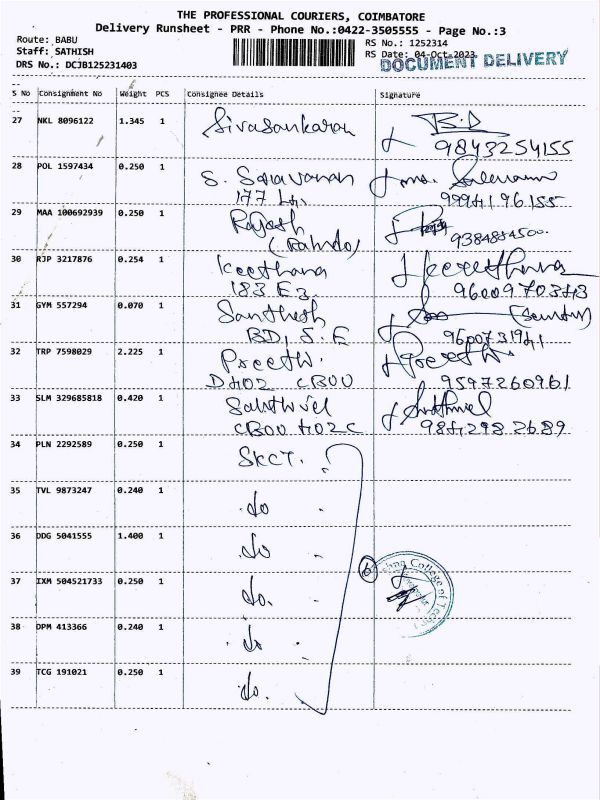 THE PROFESSIONAL COURIERS, COIMBATORE
Delivery Runsheet - PRR - Phone No.:0422-3505555 - Page No.:3
Route: BABU
RS No.: 1252314
Staff: SATHISH
RS Date: 04-Oct-2023
DOCUMENT DELIVERY
DRS No.: DCJB125231403
S No Consignment No Weight PCS Consignee Details Signature
27 NKL 8096122 1.345 1 Sivasankaran
9843254155
28 POL 1597434 0.250 1 S. Saravanan
177 
99941 96155
29 MAA 100692939 0.250 1 Rajesh
9384884500
30 RJP 3217876 0.254 1 Keethana Keerthana
183 E3 9600970343
31 GYM 557294 0.070 1 Santhosh
BD, S.E 9600731941
32 TRP 7598029 2.225 1 Preethi.
D402 CBOU 9597260961
33 SLM 329685818 0.420 1 Sakthivel
CBOU 402C 9842982689
34 PLN 2292589 0.250 1 SKCT.
35 TVL 9873247 0.240 1 do
36 DDG 5041555 1.400 1 do
6
37 IXM 504521733 0.250 1 do.
College of Tech
38 DPM 413366 0.240 1 do
39 TCG 191021 0.250 1 do.